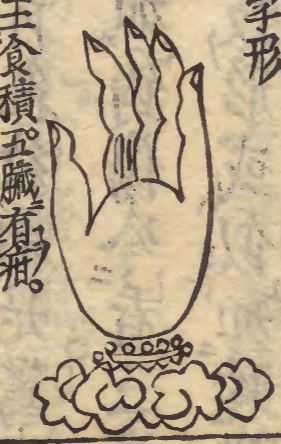 字形
主食積五臟ニ有疳。